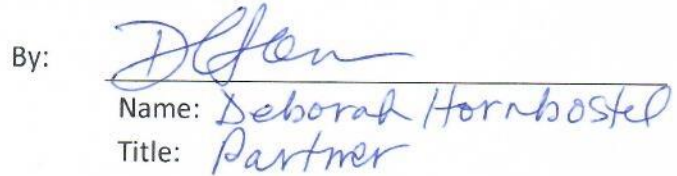 By:
Name: Deborah Hornbostel
Title: Partner